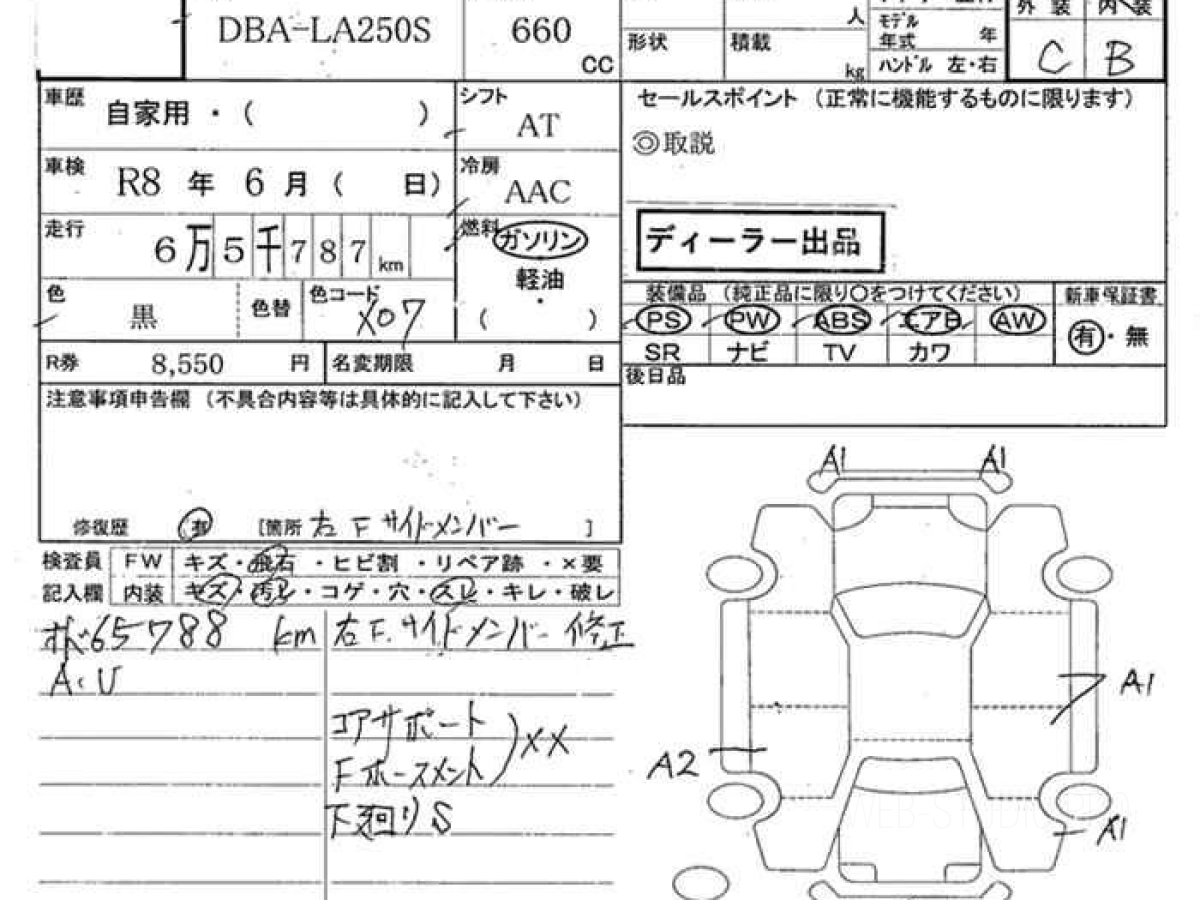 DBA-LA250S
660
CC
人
形状
積載
kg
モデル
年式
年
ハンドル 左・右
外装
内装
C
B
車歴
自家用・( )
シフト
AT
セールスポイント (正常に機能するものに限ります)
◎取説
車検
R8 年 6 月 ( 日)
冷房
AAC
走行
6万5千787km
燃料
ガソリン
軽油
・
( )
ディーラー出品
色
黒
色替
色コード
X07
装備品 (純正品に限り○をつけてください)
新車保証書
PS PW ABS エアB AW
有・無
SR ナビ TV カワ
R券 8,550 円
名変期限 月 日
後日品
注意事項申告欄 (不具合内容等は具体的に記入して下さい)
修復歴 有 [箇所 右F サイドメンバー ]
検査員 FW キズ・飛石・ヒビ割・リペア跡・×要
記入欄 内装 キズ・汚レ・コゲ・穴・スレ・キレ・破レ
65788 km
右F.サイドメンバー修正
A・U
コアサポート
Fホースメント
XX
下廻りS
A1
A1
A1
A2
A1
WEB-STUDIO